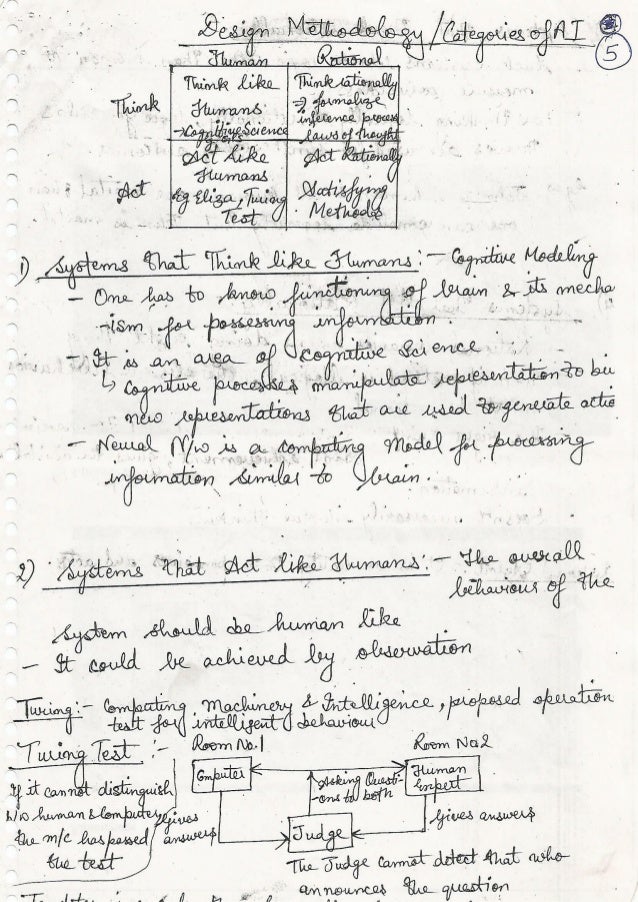 Design Methodology/Categories of AI
5
Human Rational
Think
Think like
Humans
→ Cognitive Science
Think rationally
⇒ formalize
inference process
laws of thought
Act
Act like
Humans
Eg Eliza, Turing
Test
Act Rationally
Satisfying
Methods
1) Systems that Think like Humans:- Cognitive Modeling
- One has to know functioning of brain & its mecha
-ism for possessing information.
- It is an area of Cognitive Science
↳ Cognitive processes manipulate representation to bui
new representations that are used to generate actio
- Neural N/w is a computing Model for processing
information similar to brain.
2) Systems that Act like Humans:- The overall
behaviour of the
System should be human like
- It could be achieved by observation
Turing:- Computing Machinery & Intelligence, proposed operation
test for intelligent behaviour
Turing Test:-
Room No.1
Room No2
Computer
Asking Questi
-ons to both
Human
Expert
If it cannot distinguish
b/w human & computer
the m/c has passed
the test
Gives
answers
Judge
Gives answers
The Judge cannot detect that who
announces the question